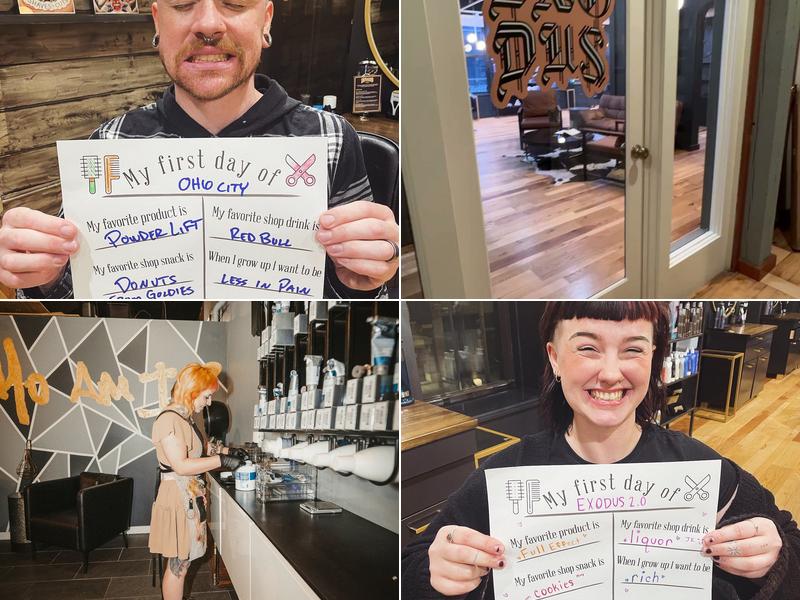 My first day of
OHIO CITY
My favorite product is
POWDER LIFT
My favorite shop drink is
RED BULL
My favorite shop snack is
DONUTS
FROM GOLDIES
When I grow up I want to be
LESS IN PAIN
DUS
Ho Am I
My first day of
EXODUS 2.0
My favorite product is
Full Effect
My favorite shop drink is
liquor
My favorite shop snack is
cookies
When I grow up I want to be
rich